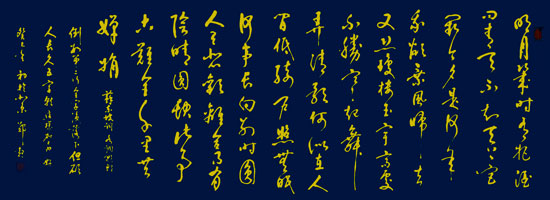 明月几时有把酒
问青天不知天上宫
阙今夕是何年
我欲乘风归去
又恐琼楼玉宇高处
不胜寒起舞
弄清影何似在人
间低绮户照无眠
何事长向别时圆
人有悲欢离合月有
阴晴圆缺此事
古难全千里共
婵娟
但愿
人长久